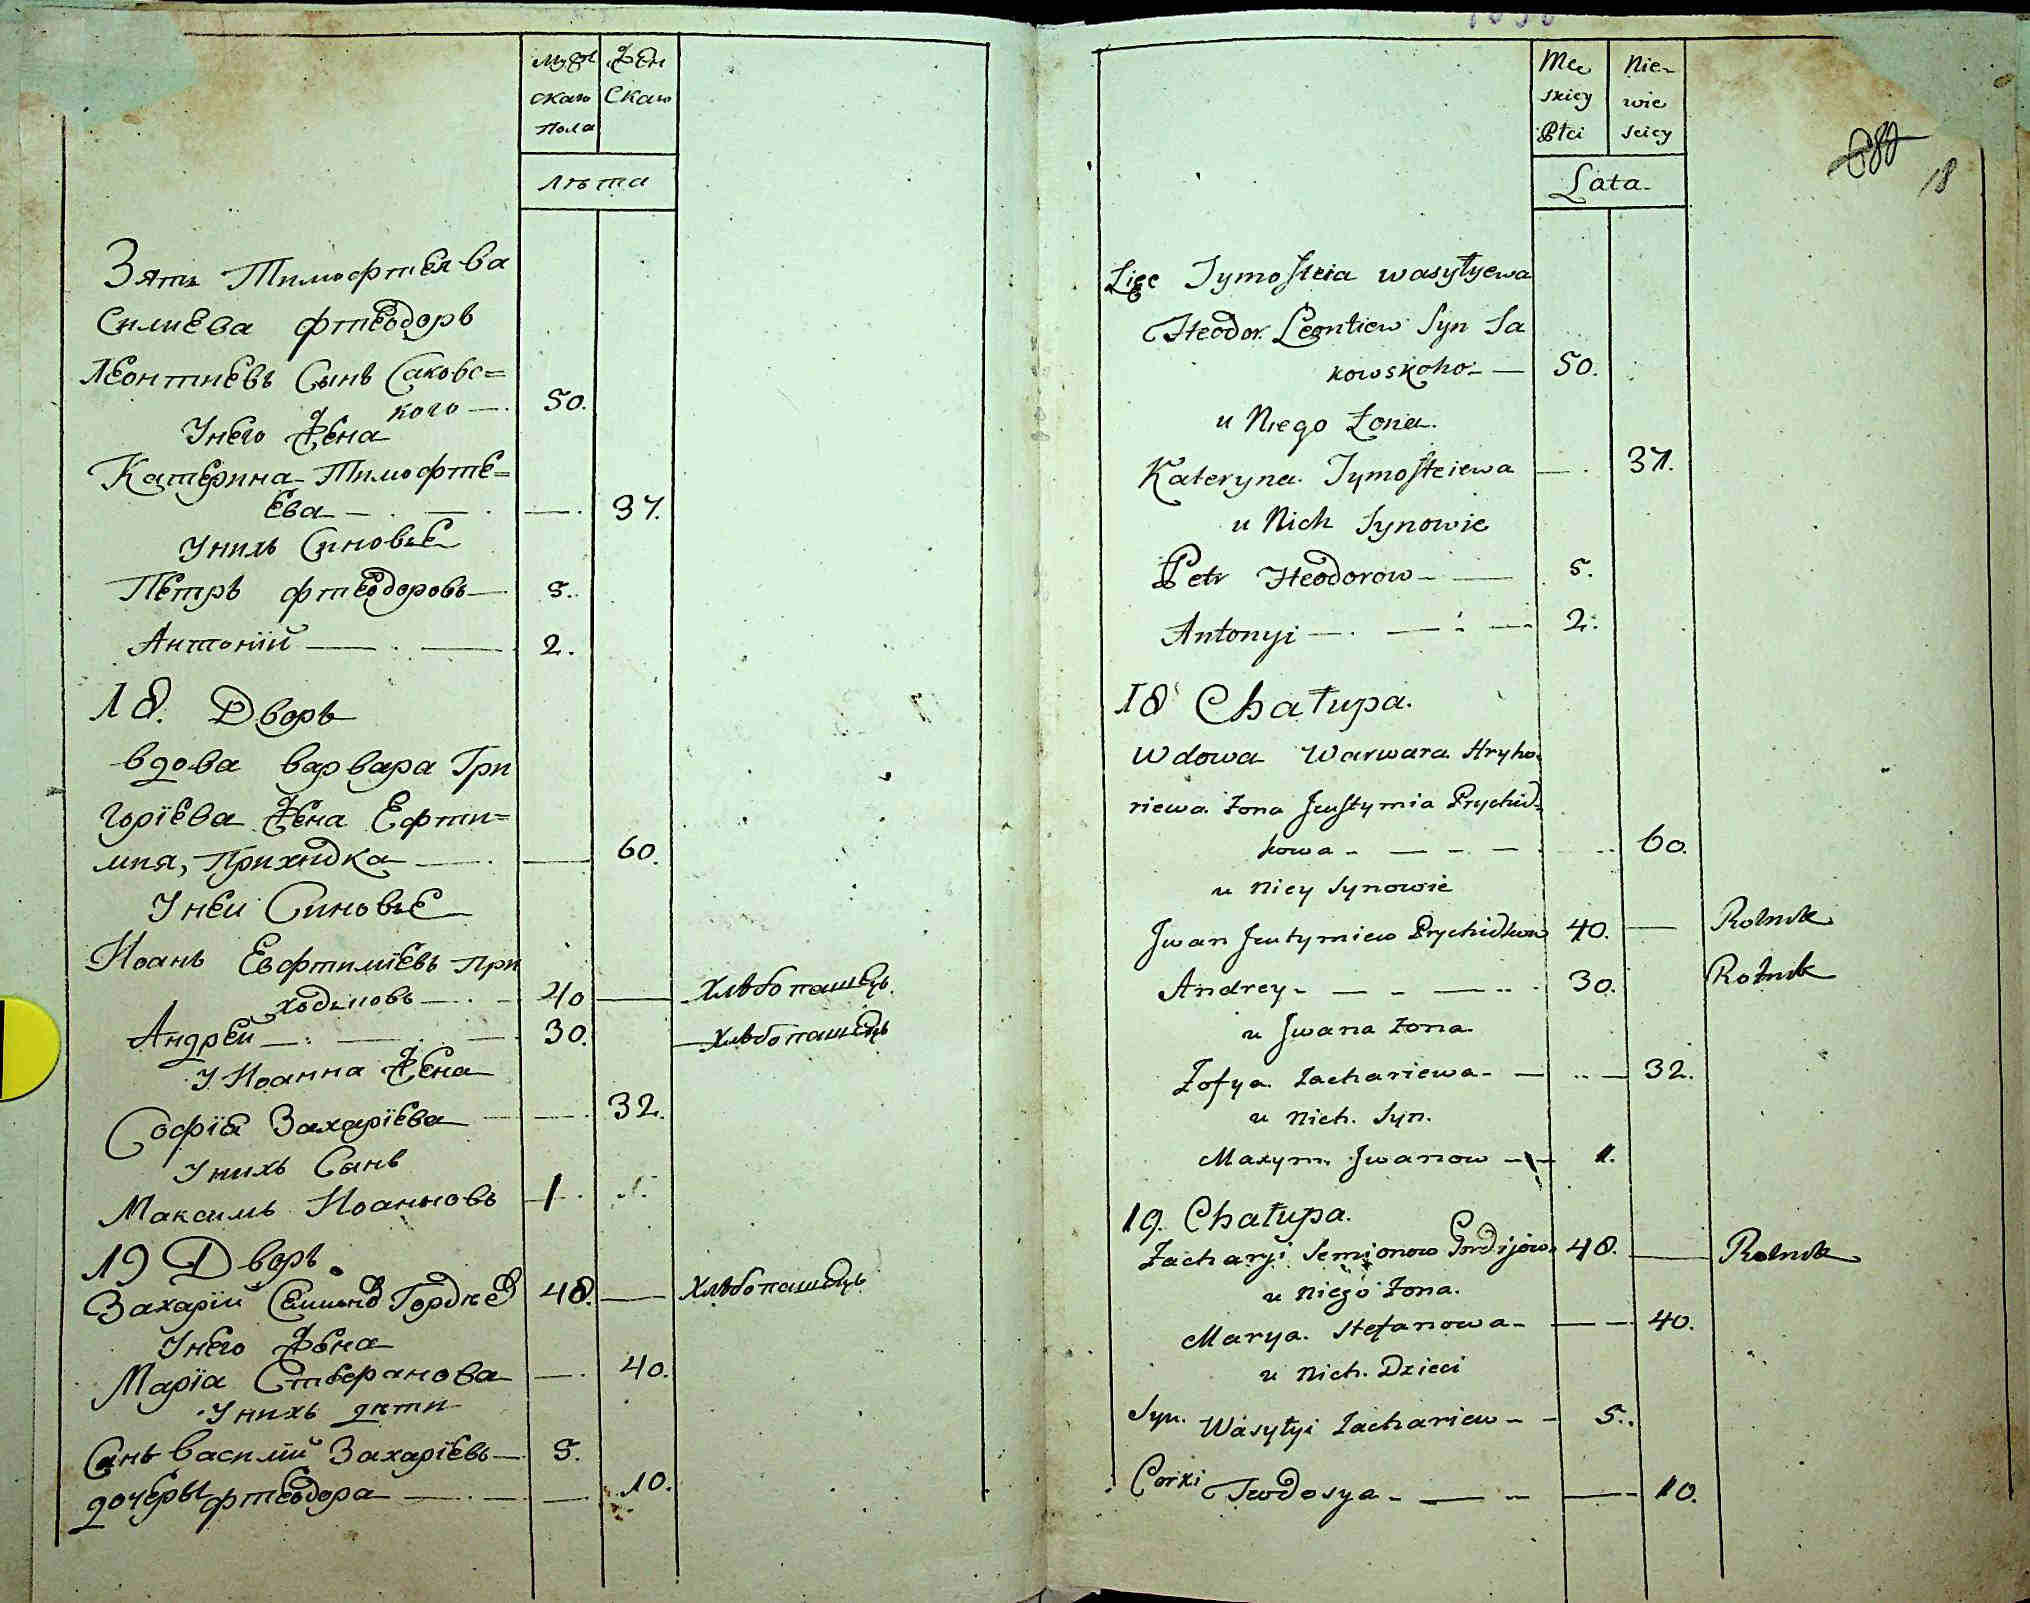 Муже
скаго
Пола
Жен
Скаго
Лѣта
Зять Тимофтея ва
Силиева фтеодоръ
Леонтиевъ Сынъ Саковс=
кого — 50.
Унего Жена
Катерина Тимофте=
Ева — — — 37.
Унихъ Синовѣе
Петръ фтеодоровъ — 5.
Антоній — — 2.
18. Дворъ
вдова варвара Гри
горїева Жена Ефти=
мия, Прихидка — — 60.
Унеи Синовѣе
Иоанъ Евфтимїевъ При
ходковъ — 40 — Хлѣбопашецъ.
Андрей — — 30. — Хлѣбопашецъ
У Иоанна Жена
Софїа Захарїева — 32.
Унихъ Сынъ
Максимъ Иоанновъ 1.
19 Дворъ
Захарїй Семионов Гордѣев 48. — Хлѣбопашецъ
Унего Жена
Марїа Стеѳанова — 40.
Унихъ дѣти
Сынъ василїй Захарїевъ — 5.
дочеры фтеодора — — 10.
Mę
skiey
Płci
Nie-
wie
sciey
Lata
18
Zięc Tymofteia wasyłyewa
Fteodor Leontiew Syn Sa
kowskoho — 50.
u Niego Żona.
Kateryna Tymofteiewa — 37.
u Nich Synowie
Petr Fteodorow — 5.
Antonyi — — 2.
18 Chałupa.
Wdowa Warwara Hryho=
riewa Żona Jeuftymia Prychid=
kowa — — 60.
u Niey Synowie
Jwan Jeutymiew Prychidkow 40. — Rolnik
Andrey — — 30. Rolnik
u Jwana Żona
Zofya Zachariewa — 32.
u Nich. Syn.
Maxym Jwanow — 1.
19. Chałupa.
Zacharyi Semionow Gordijow 48. — Rolnik
u Niego Żona.
Marya Stefanowa — 40.
u Nich. Dzieci
Syn. Wasyłyi Zachariew — 5.
Corki Teodosya — — 10.